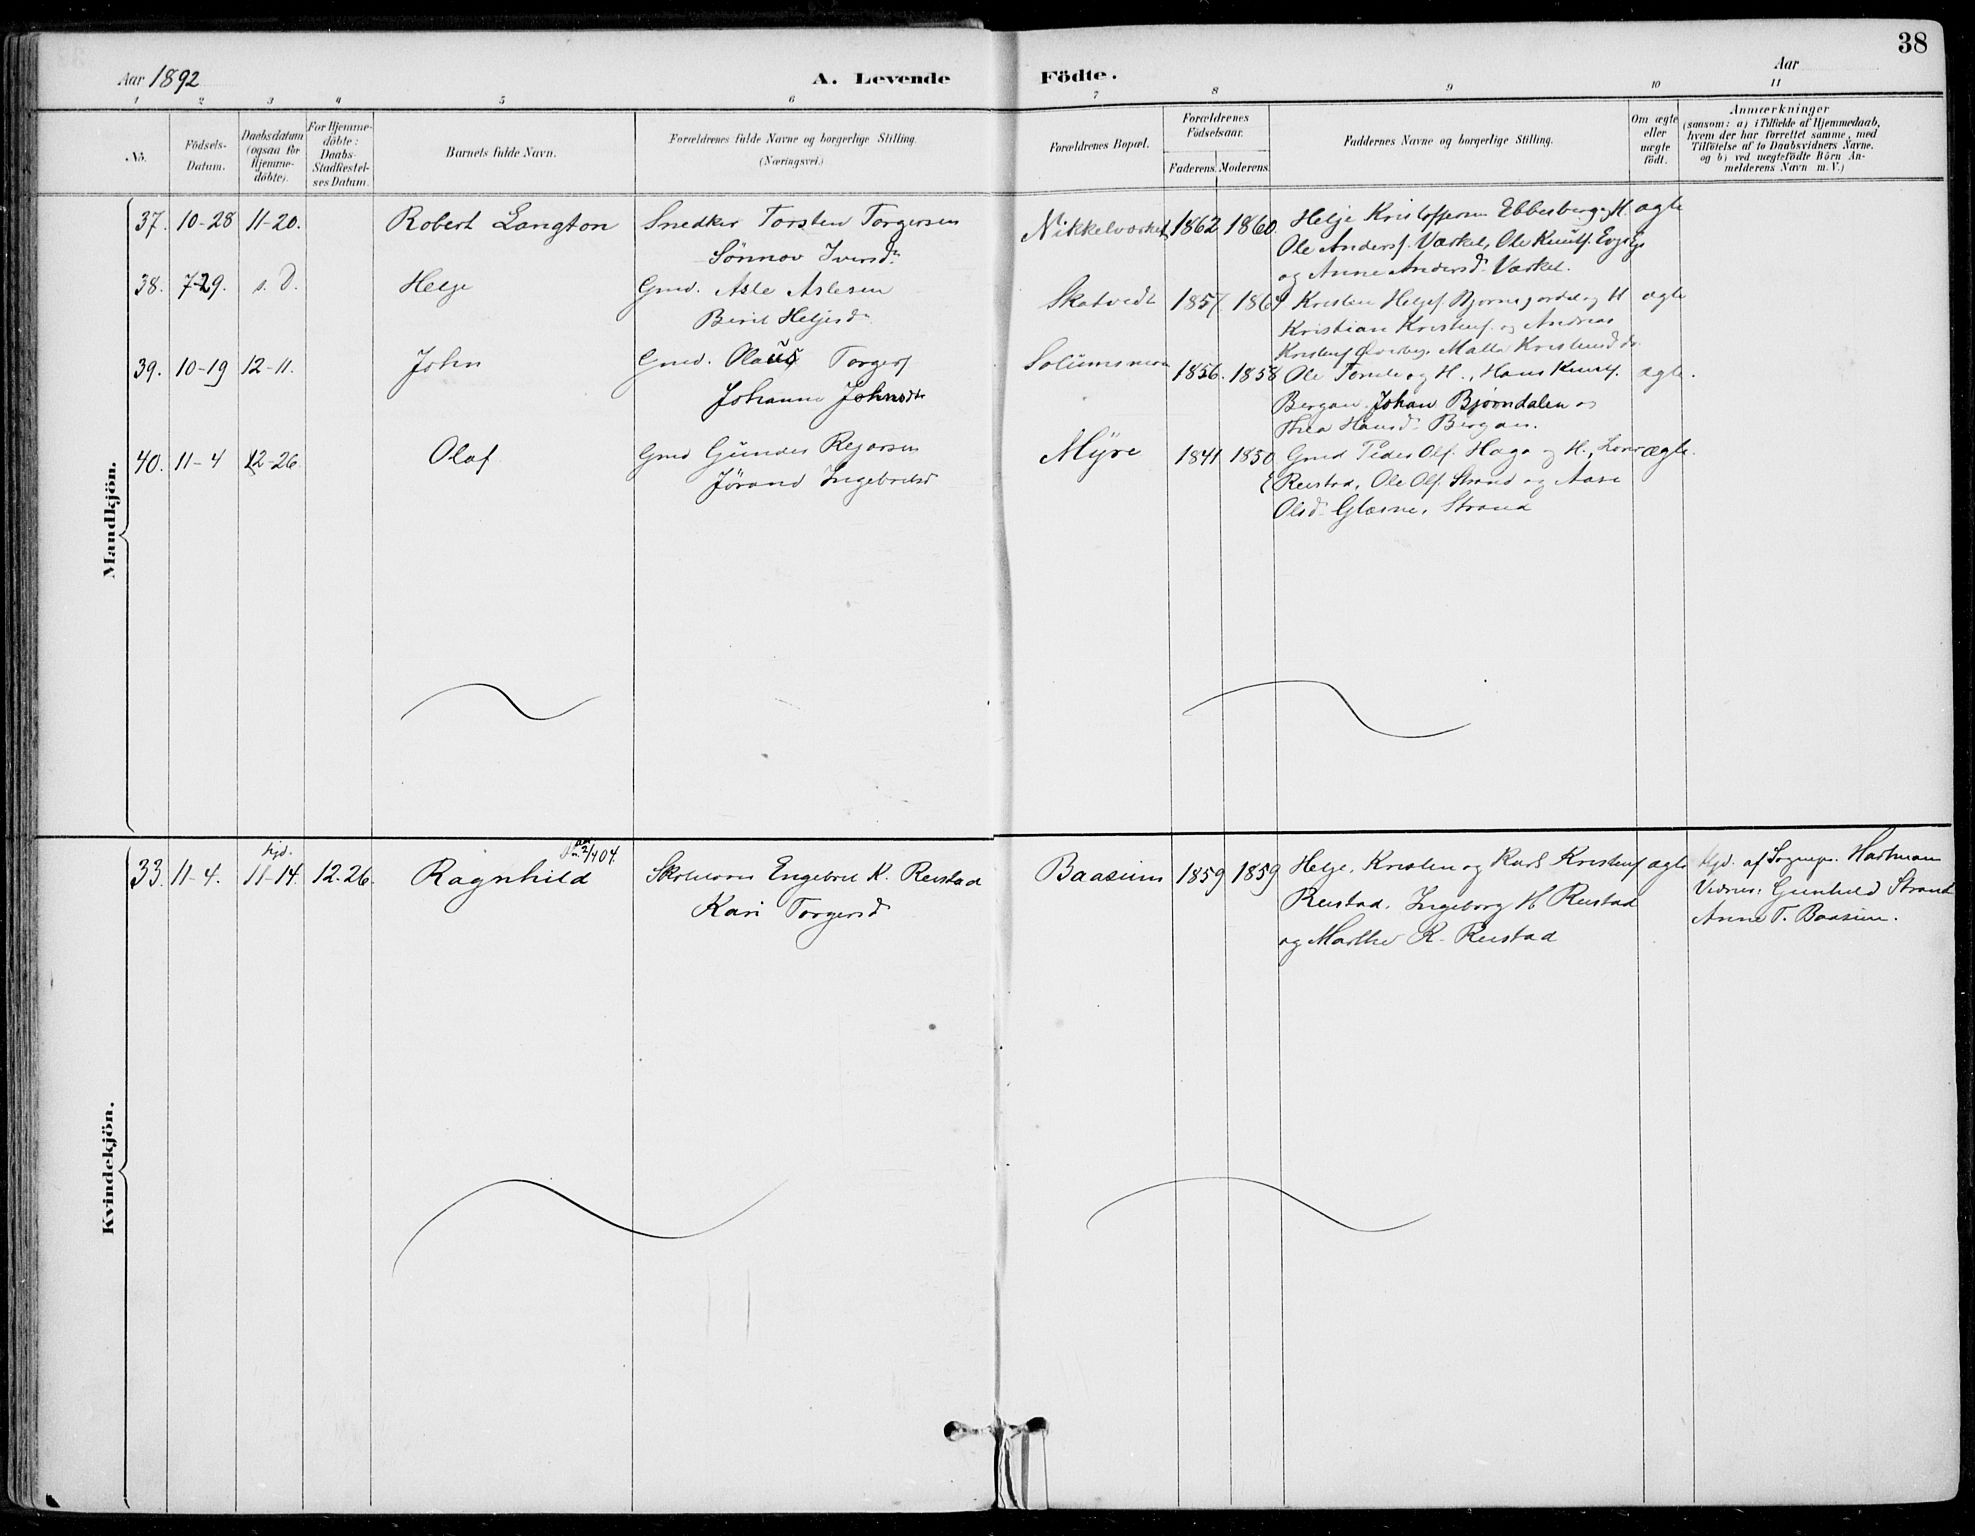 38
Aar 1892
A. Levende Födte.
Aar
1 2 3 4 5 6 7 8 9 10 11
No.
Födsels-Datum.
Daabsdatum (ogsaa for Hjemme-döbte).
For Hjemme-döbte: Daabs-Stadfæstel-ses Datum.
Barnets fulde Navn.
Forældrenes fulde Navne og borgerlige Stilling.
(Næringsvei.)
Forældrenes Bopæl.
Forældrenes Födselsaar.
Faderens. Moderens.
Faddernes Navne og borgerlige Stilling.
Om ægte eller uægte födt.
Anmærkninger
(saasom: a) i Tilfælde af Hjemmedaab,
hvem der har forrettet samme, med
Tilföielse af to Daabsvidners Navne,
og b) ved uægtefödte Börn An-
melderens Navn m. V.)
Mandkjön.
37. 10-28 11-20. Robert Langton Snedker Torsten Torgersen Nikkelværket 1862 1860. Helje Kristoffersen Ebbesberg og H. ægte
Sønnov Iversd. Ole Anders. Værket, Ole Knuts.
og Anne Andersd. Værket.
38. 7-29. s. D. Helge Gmd. Asle Aslesen Skatvedt 1857 1864 Kristen Helges. Bjørnsgordal og H ægte
Berit Heljesd. Kristian Kristens. og Andreas
Kristens. Øverby, Malla Kristensd. do.
39. 10-19 12-11. John Gmd. Olaus Torgers. Solumsmoen 1856. 1858 Ole og H., Hans Knuts. ægte.
Johanne Johnsdt. Bergan. Johan Bjørndalen og
Thea Hansd. Bergan.
40. 11-4 12-26. Olaf Gmd Gunder Rejorsen Myre 1841 1850 Gmd Peder Ols. Haga og H., ægte.
Jørand Ingebretsd. Reistad, Ole Ols. Strand og Aase
Olsd. Glasne, Strand
Kvindekjön.
33. 11-4. hjd. 11-14. 12-26. Ragnhild 2/4 04. Engebret K. Reistad Baasum 1859 1859 Helje, Kristen og Karl Kristens. ægte hjd. af Sognepr. Hartman
Kari Torgersd. Reistad. Ingeborg H Reistad Vidner: Gunhild Strand
og Marthe K. Reistad Anne T. Baasum.